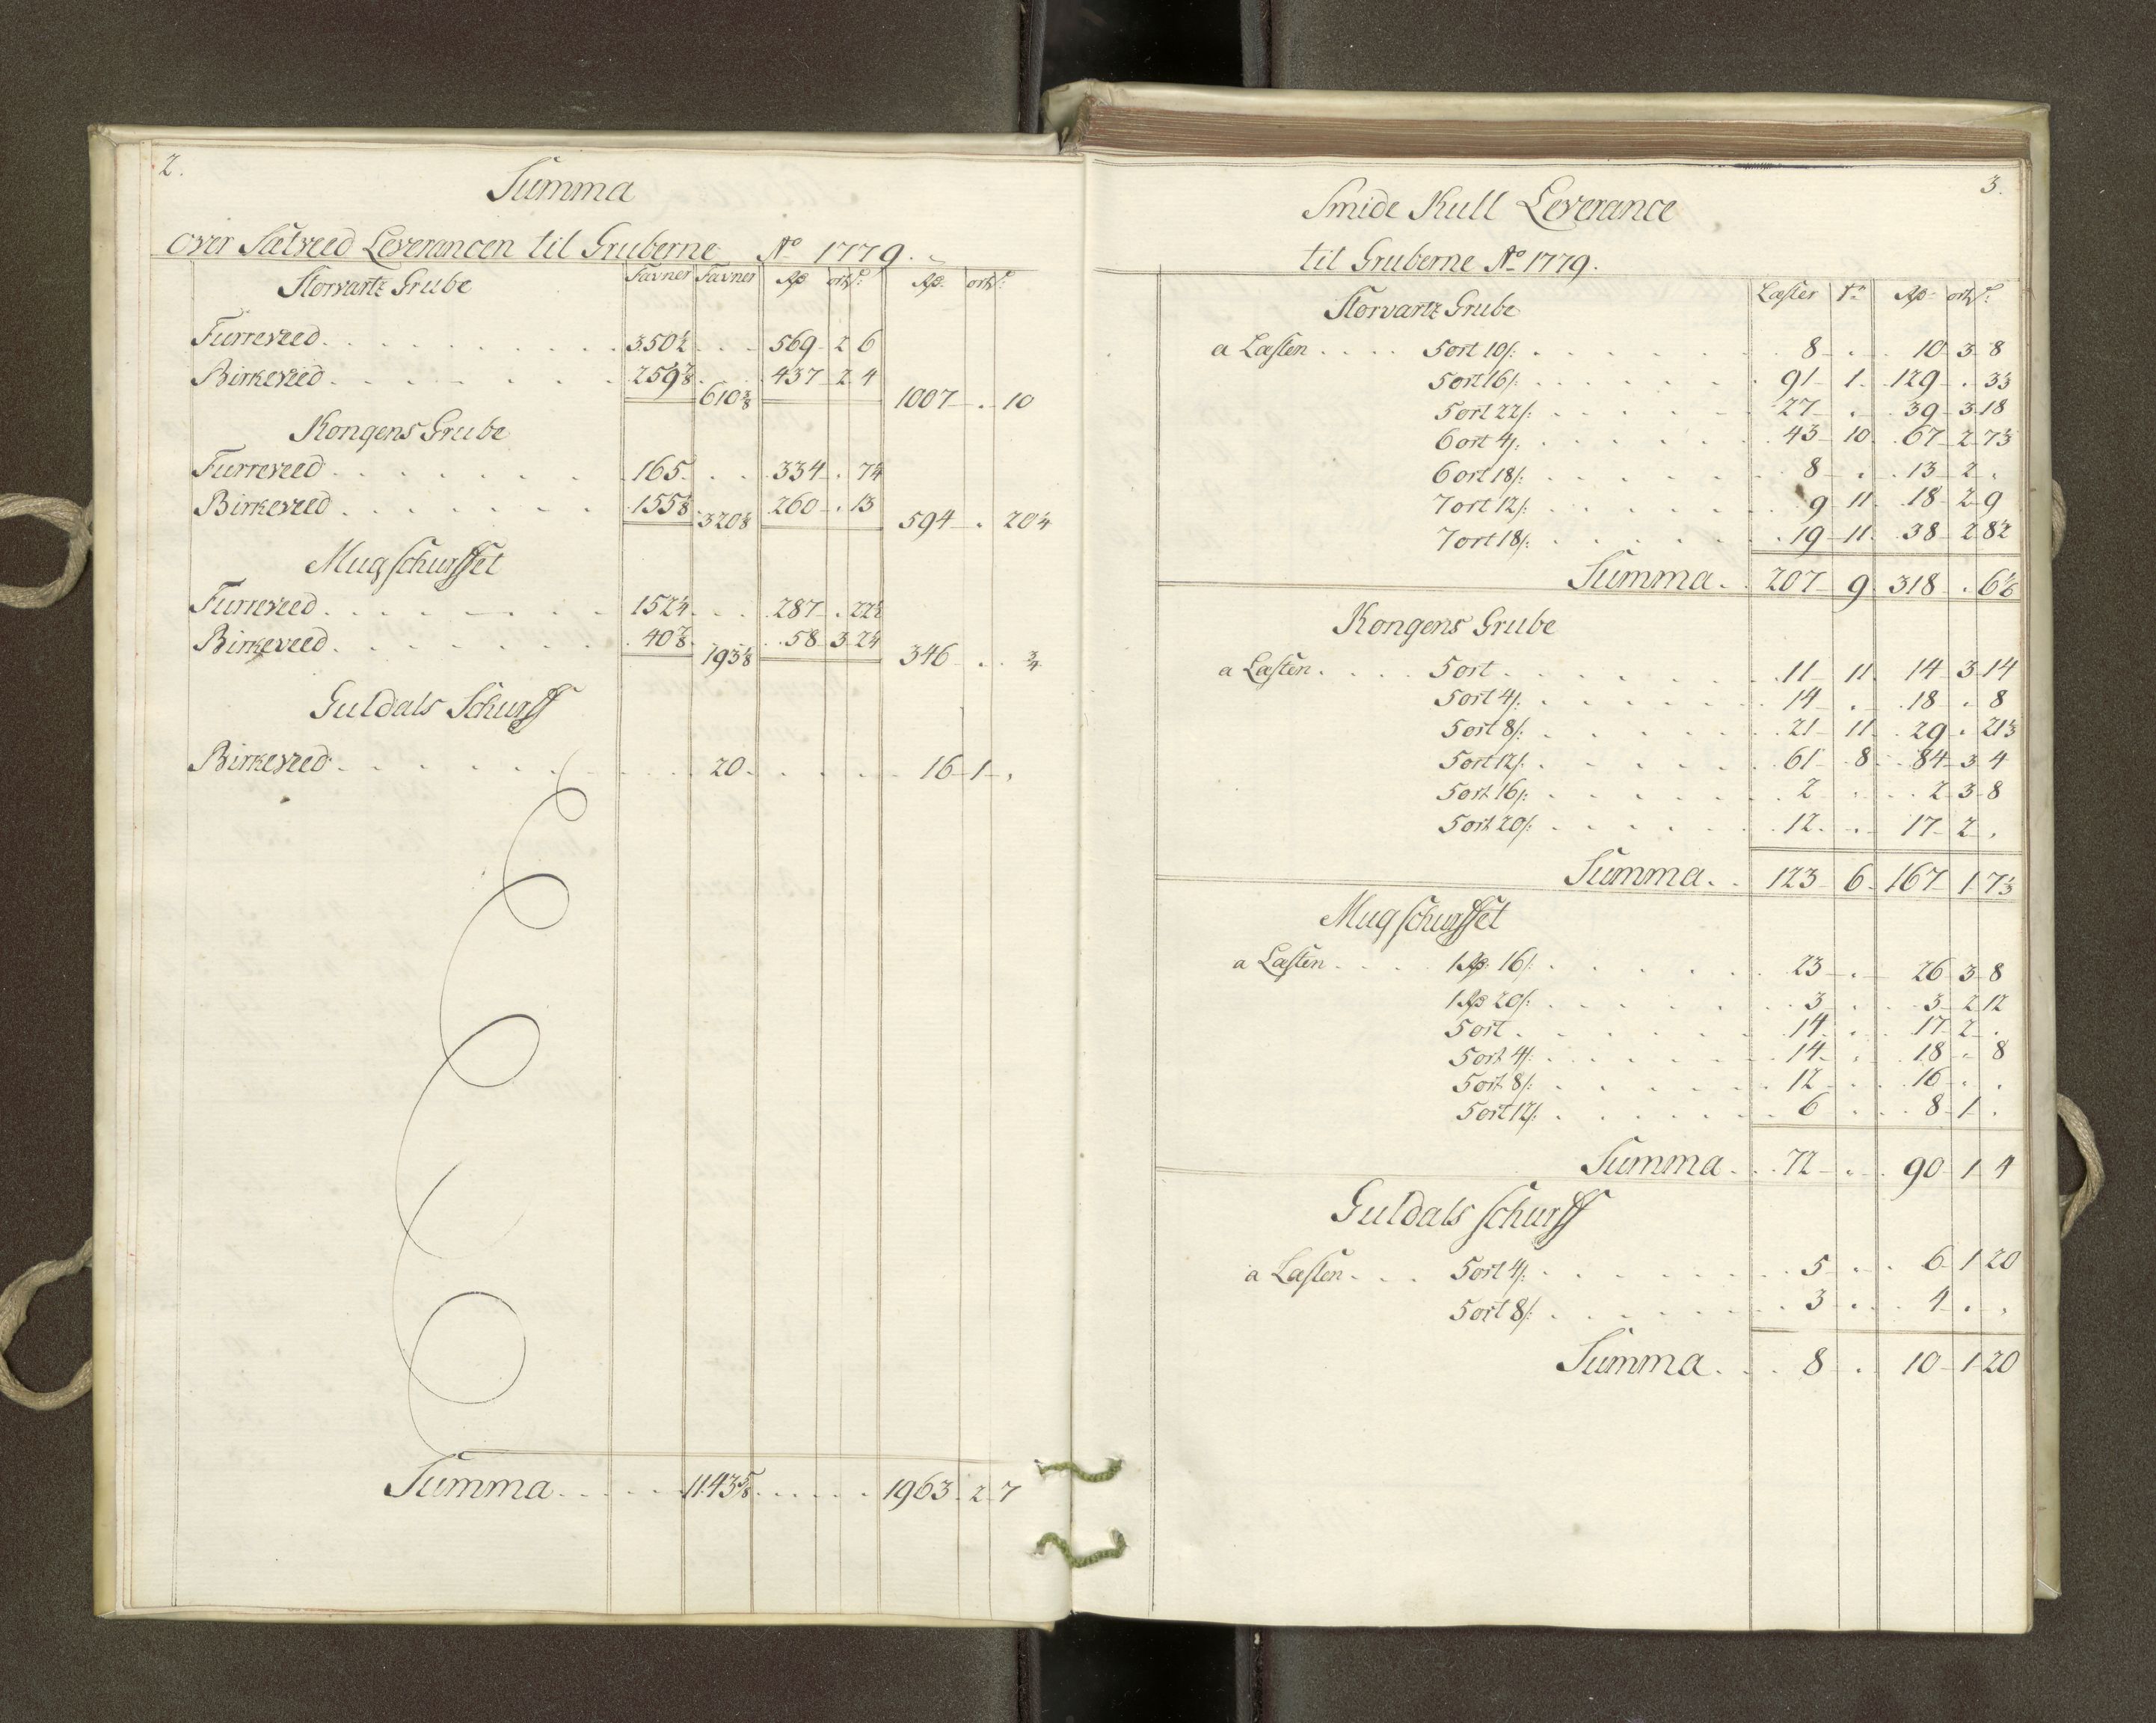 2.
Summa
over Sætveed Leverancen til Gruberne No 1779.
Storvartz Grube Favner Favner Rp ort s: Rp. ort s:
Furreveed 350½ 569 2 6
Birkeveed 259⅞ 610⅜ 437 2 4 1007 . 10
Kongens Grube
Furreveed 165 334 . 7¼
Birkeveed 155⅛ 320⅛ 260 . 13 594 . 20¼
Mugschurffet
Furreveed 152¼ 287 . 22½
Birkeveed 40⅞ 193⅛ 58 3 2¼ 346 . ¾
Guldals Schurff
Birkeveed 20 16 1 .
Summa 1143⅝ 1963 2 7
3.
Smide Kull Leverance
til Gruberne No 1779.
Storvartz Grube Læster Tr Rp ort s:
a Læsten 5 ort 10 s: 8 . 10 3 8
5 ort 16 s: 91 1 129 . 3⅓
5 ort 22 s: 27 . 39 3 18
6 ort 4 s: 43 10 67 2 7⅓
6 ort 18 s: 8 . 13 2 .
7 ort 12 s: 9 11 18 2 9
7 ort 18 s: 19 11 38 2 8½
Summa 207 9 318 . 6⅙
Kongens Grube
a Læsten 5 ort 11 11 14 3 14
5 ort 4 s: 14 . 18 . 8
5 ort 8 s: 21 11 29 . 21⅓
5 ort 12 s: 61 8 84 3 4
5 ort 16 s: 2 . 2 3 8
5 ort 20 s: 12 . 17 2 .
Summa 123 6 167 1 7⅓
Mugschurffet
a Læsten 1 Rp: 16 s: 23 . 26 3 8
1 Rp 20 s: 3 . 3 2 12
5 ort 14 . 17 2 .
5 ort 4 s: 14 . 18 . 8
5 ort 8 s: 12 . 16 . .
5 ort 12 s: 6 . 8 1 .
Summa 72 . 90 1 4
Guldals Schurff
a Læsten 5 ort 4 s: 5 . 6 1 20
5 ort 8 s: 3 . 4 . .
Summa 8 . 10 1 20